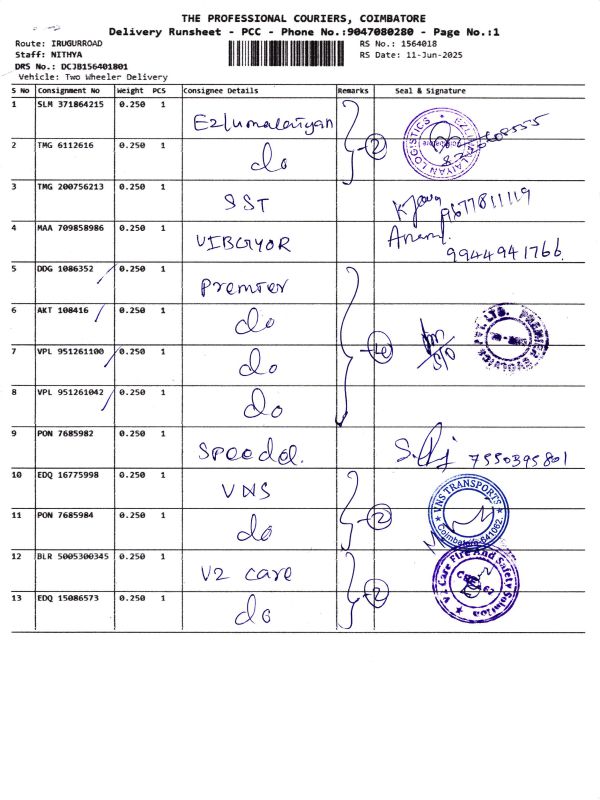 THE PROFESSIONAL COURIERS, COIMBATORE
Delivery Runsheet - PCC - Phone No.:9047080280 - Page No.:1
Route: IRUGURROAD
Staff: NITHYA
DRS No.: DCJB156401801
Vehicle: Two Wheeler Delivery
RS No.: 1564018
RS Date: 11-Jun-2025
S No Consignment No Weight PCS Consignee Details Remarks Seal & Signature
1 SLM 371864215 0.250 1 Ezlumalaiyan
2 TMG 6112616 0.250 1 do 2
EZLUMALAIYAN LOGISTICS
3 TMG 200756213 0.250 1 SST 9677811119
4 MAA 709858986 0.250 1 VIBGYOR Anand. 9944941766.
5 DDG 1086352 0.250 1 Premier
6 AKT 108416 0.250 1 do
7 VPL 951261100 0.250 1 do 4
8 VPL 951261042 0.250 1 do
9 PON 7685982 0.250 1 Speedel. 7550395801
10 EDQ 16775998 0.250 1 VNS
11 PON 7685984 0.250 1 do 2
VNS TRANSPORTS
Coimbatore-641062.
12 BLR 5005300345 0.250 1 V2 care
13 EDQ 15086573 0.250 1 do 2
V2 Care Fire And Safety Solution